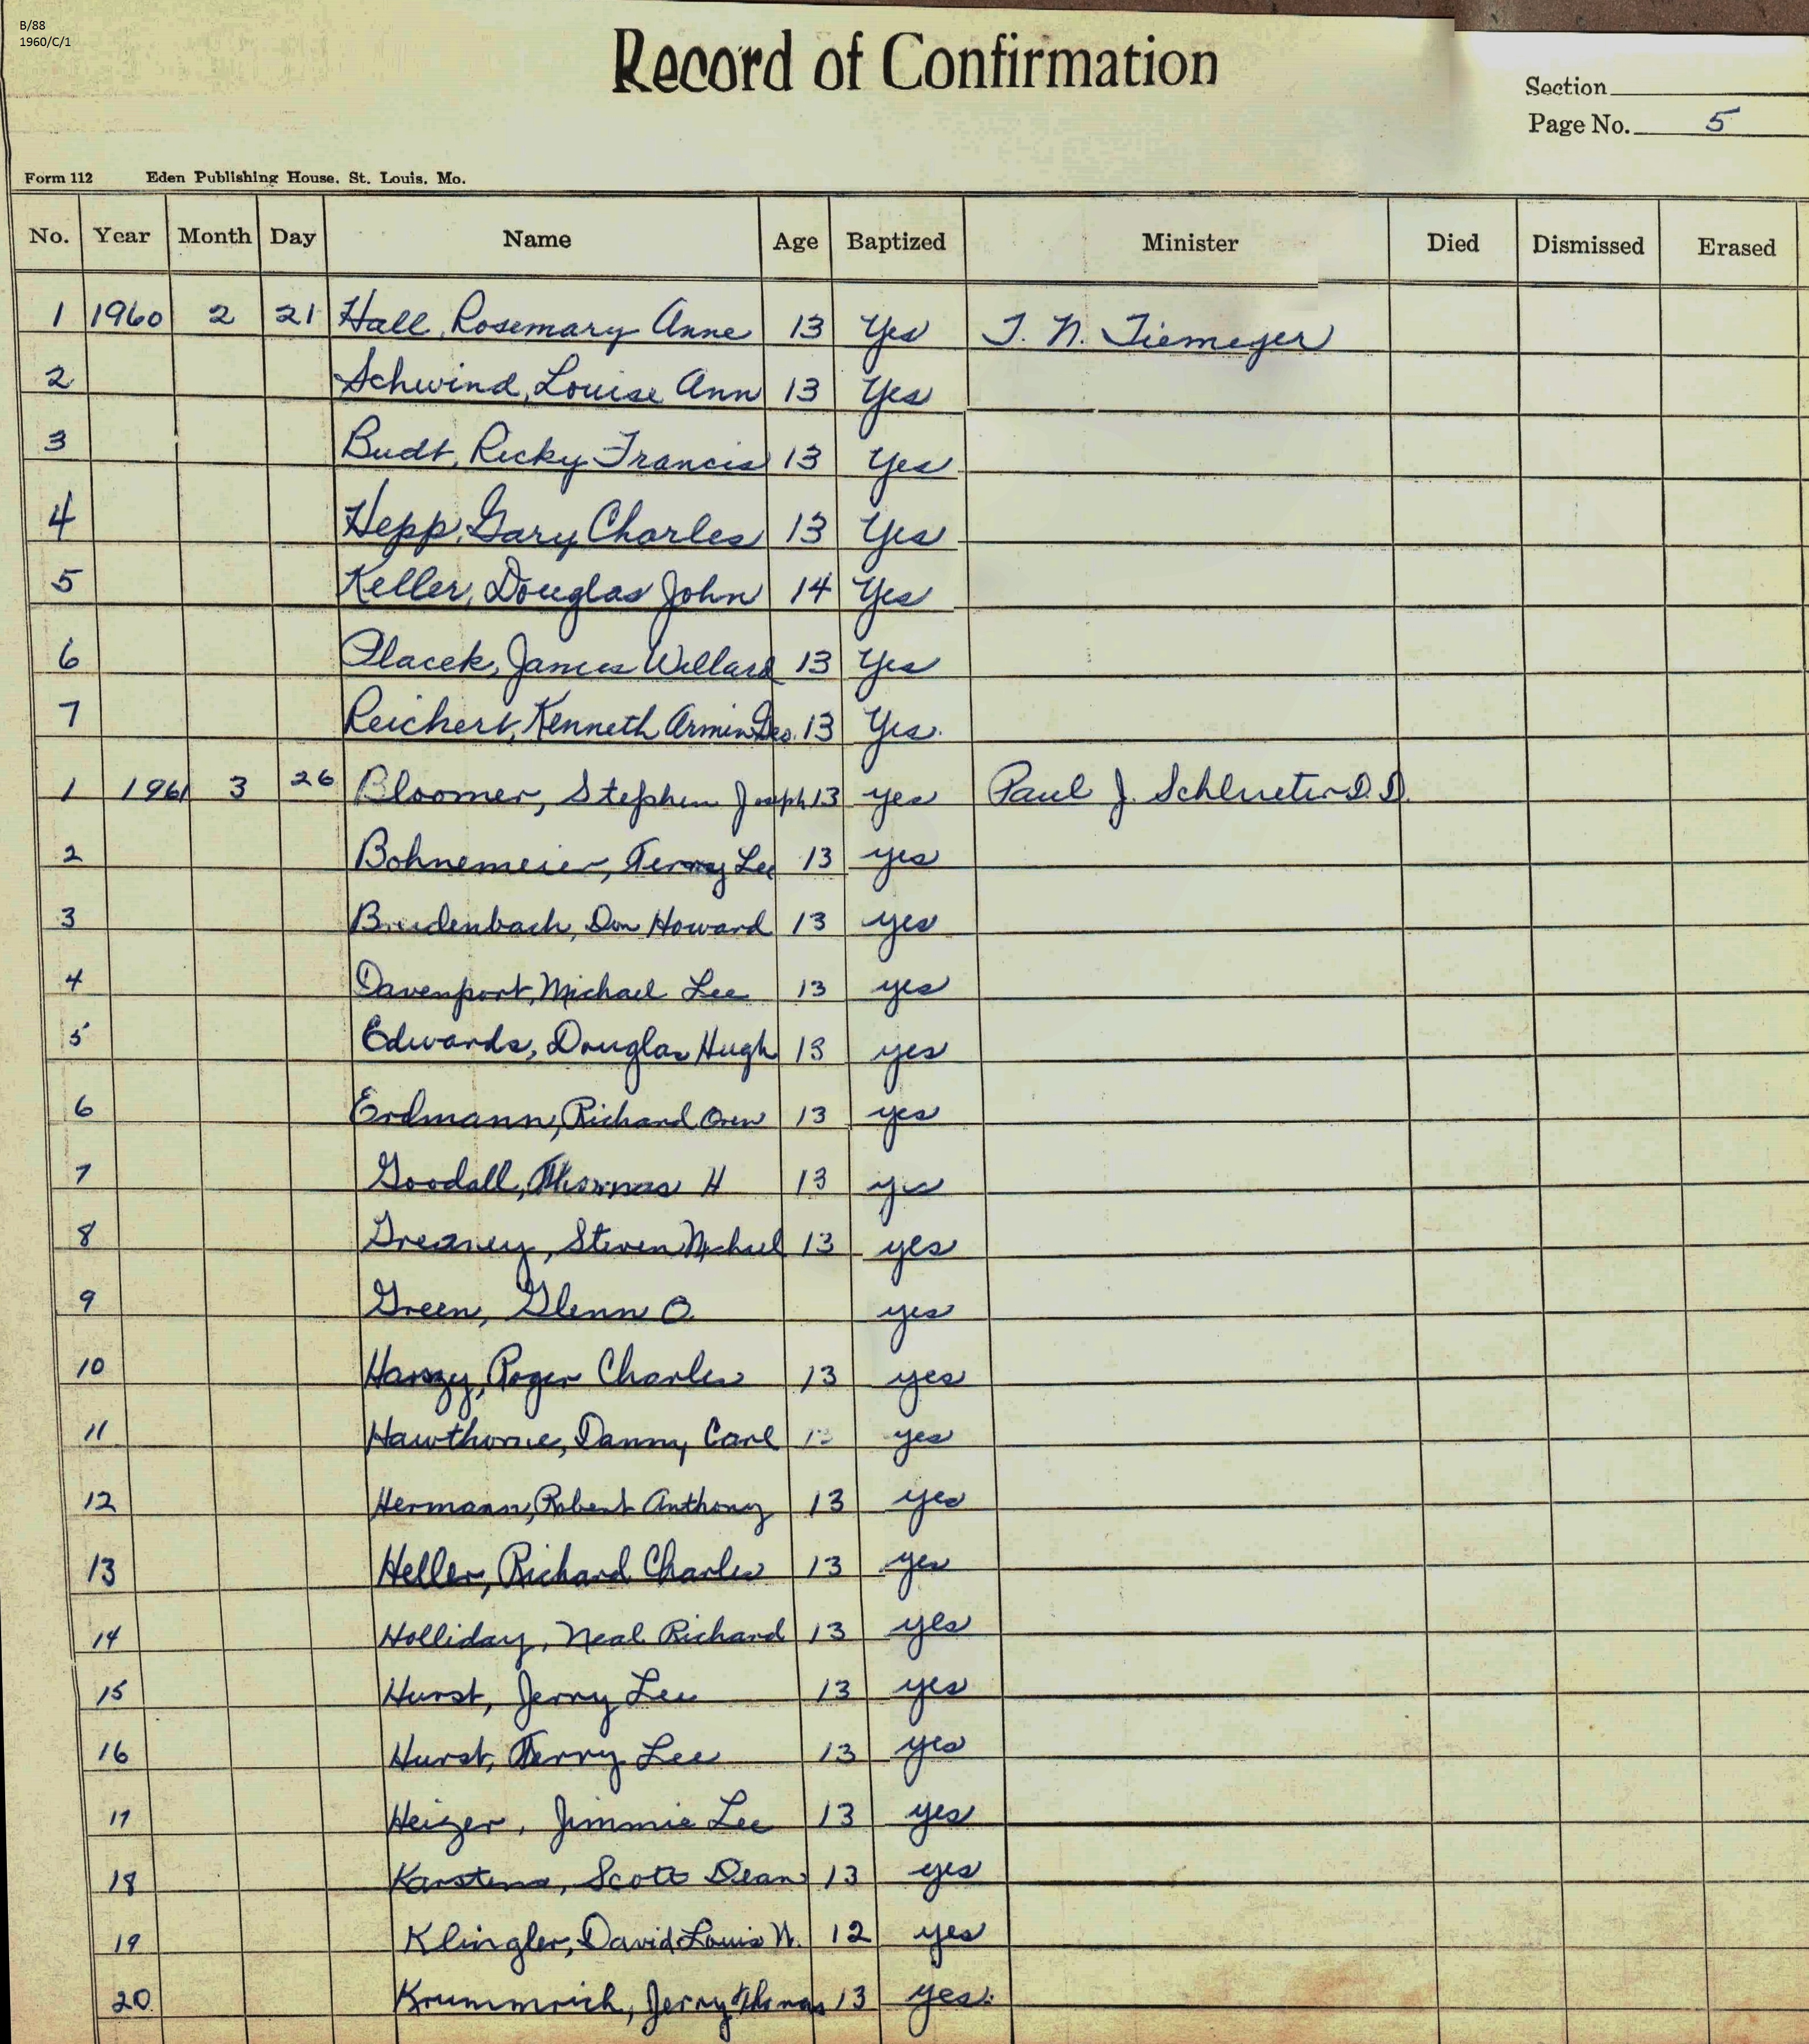 B/88
1960/C/1
Record of Confirmation
Section
Page No. 5
Form 112 Eden Publishing House, St. Louis, Mo.
No. Year Month Day Name Age Baptized Minister Died Dismissed Erased
1 1960 2 21 Hall, Rosemary Anne 13 Yes T. N. Tiemeyer
2 Schwind, Louise Ann 13 Yes
3 Budt, Ricky Francis 13 Yes
4 Hepp, Gary Charles 13 Yes
5 Keller, Douglas John 14 Yes
6 Placek, James Willard 13 Yes
7 Reichert, Kenneth Armin Geo. 13 Yes.
1 1961 3 26 Bloomer, Stephen Joseph 13 yes Paul J. Schlueter D.D.
2 Bohnemeier, Terry Lee 13 yes
3 Breidenbach, Don Howard 13 yes
4 Davenport, Michael Lee 13 yes
5 Edwards, Douglas Hugh 13 yes
6 Erdmann, Richard Oren 13 yes
7 Goodall, Thomas H 13 yes
8 Greaney, Steven Michael 13 yes
9 Green, Glenn O. yes
10 Roger Charles 13 yes
11 Hawthorne, Danny Carl yes
12 Hermann, Robert Anthony 13 yes
13 Heller, Richard Charles 13 yes
14 Holliday, Neal Richard 13 yes
15 Hurst, Jerry Lee 13 yes
16 Hurst, Terry Lee 13 yes
17 Heizer, Jimmie Lee 13 yes
18 Karstens, Scott Dean 13 yes
19 Klingler, David Louis W. 12 yes
20 Krummrich, Jerry Thomas 13 yes.